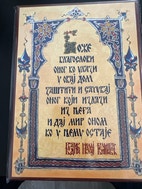 Боже
благослови
оног ко улази
у овај дом
заштити и сачувај
оног који излази
из њега
и дај мир оном
ко у њему остаје